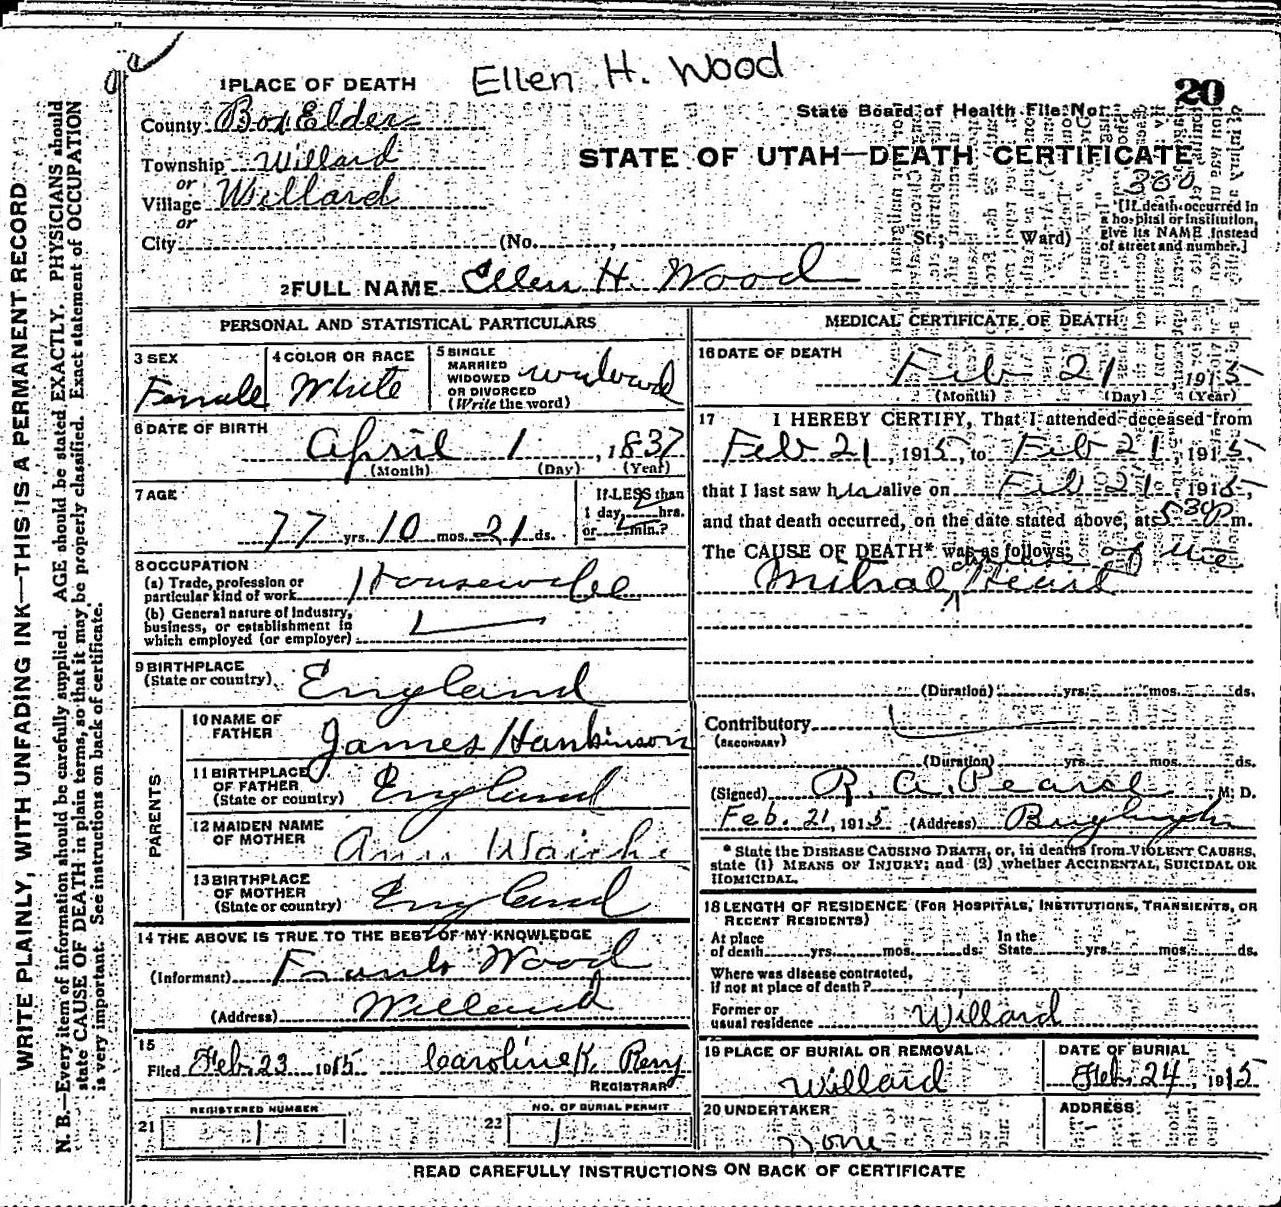 Ellen H. Wood
20
1 PLACE OF DEATH
State Board of Health File No.
County Box Elder
Township Willard
or
Village Willard
or
City (No. , St.; Ward)
STATE OF UTAH—DEATH CERTIFICATE
380
[If death occurred in
a hospital or institution,
give its NAME instead
of street and number.]
2 FULL NAME Ellen H. Wood
PERSONAL AND STATISTICAL PARTICULARS
3 SEX
Female
4 COLOR OR RACE
White
5 SINGLE
MARRIED
WIDOWED
OR DIVORCED
(Write the word)
widowed
6 DATE OF BIRTH
April 1, 1837
(Month) (Day) (Year)
7 AGE
77 yrs. 10 mos. 21 ds.
If LESS than
1 day, hrs.
or min.?
8 OCCUPATION
(a) Trade, profession or
particular kind of work Housewife
(b) General nature of industry,
business, or establishment in
which employed (or employer)
9 BIRTHPLACE
(State or country) England
PARENTS
10 NAME OF
FATHER James Hankinson
11 BIRTHPLACE
OF FATHER
(State or country) England
12 MAIDEN NAME
OF MOTHER Ann
13 BIRTHPLACE
OF MOTHER
(State or country) England
14 THE ABOVE IS TRUE TO THE BEST OF MY KNOWLEDGE
(Informant) Frank Wood
(Address) Willard
15
Filed Feb. 23 1915 Caroline K. Perry
REGISTRAR
REGISTERED NUMBER
21
NO. OF BURIAL PERMIT
22
MEDICAL CERTIFICATE OF DEATH
16 DATE OF DEATH
Feb 21 1915
(Month) (Day) (Year)
17 I HEREBY CERTIFY, That I attended deceased from
Feb 21, 1915, to Feb 21 1915,
that I last saw her alive on Feb 21 1915,
and that death occurred, on the date stated above, at 5 30 P m.
The CAUSE OF DEATH* was as follows:
Mitral disease of the Heart
(Duration) yrs. mos. ds.
Contributory
(SECONDARY)
(Duration) yrs. mos. ds.
(Signed) R. A. Pearse, M. D.
Feb. 21, 1915 (Address) Brigham
* State the DISEASE CAUSING DEATH, or, in deaths from VIOLENT CAUSES,
state (1) MEANS OF INJURY; and (2) whether ACCIDENTAL, SUICIDAL OR
HOMICIDAL.
18 LENGTH OF RESIDENCE (FOR HOSPITALS, INSTITUTIONS, TRANSIENTS, OR
RECENT RESIDENTS)
At place
of death yrs. mos. ds. In the
State yrs. mos. ds.
Where was disease contracted,
if not at place of death?
Former or
usual residence Willard
19 PLACE OF BURIAL OR REMOVAL
Willard
DATE OF BURIAL
Feb. 24, 1915
20 UNDERTAKER
None
ADDRESS
READ CAREFULLY INSTRUCTIONS ON BACK OF CERTIFICATE
WRITE PLAINLY, WITH UNFADING INK—THIS IS A PERMANENT RECORD
N. B.—Every item of information should be carefully supplied. AGE should be stated EXACTLY. PHYSICIANS should
state CAUSE OF DEATH in plain terms, so that it may be properly classified. Exact statement of OCCUPATION
is very important. See instructions on back of certificate.